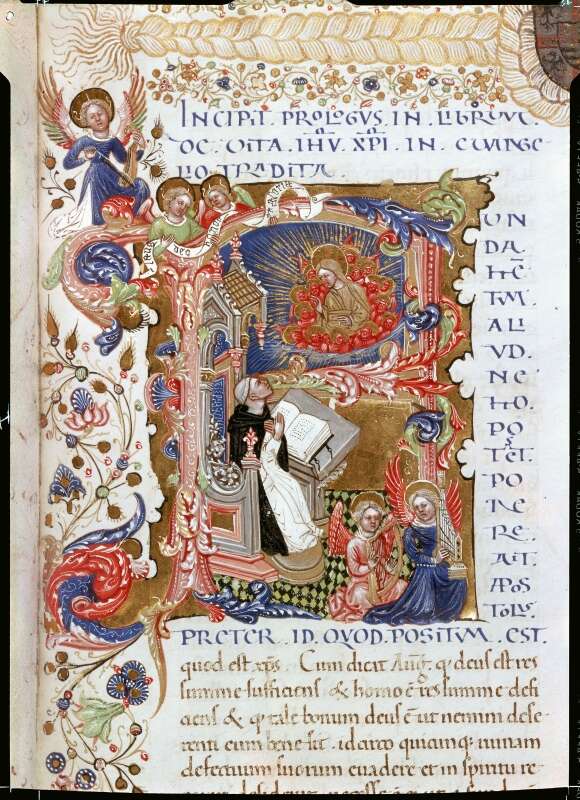 INCIPIT. PROLOGVS. IN. LIBRVM.
DE. VITA. IHV. XPI. IN. EVANGE
LIO. TRADITA.
F
UN
DA
ME
TVM.
ALI
VD.
NE
MO.
PO
TET.
PO
NE
RE.
AIT.
APOS
TOLVS.
PRETER. ID. QVOD. POSITVM. EST.
quod est xps. Cum dicat Aug. q deus est res
summe sufficiens & homo e res summe defi
ciens & q tale bonum deus e ut nemini dese
renti eum bene sit. idcirco quicunq; ruinam
defectuum suorum euadere et in spiritu re